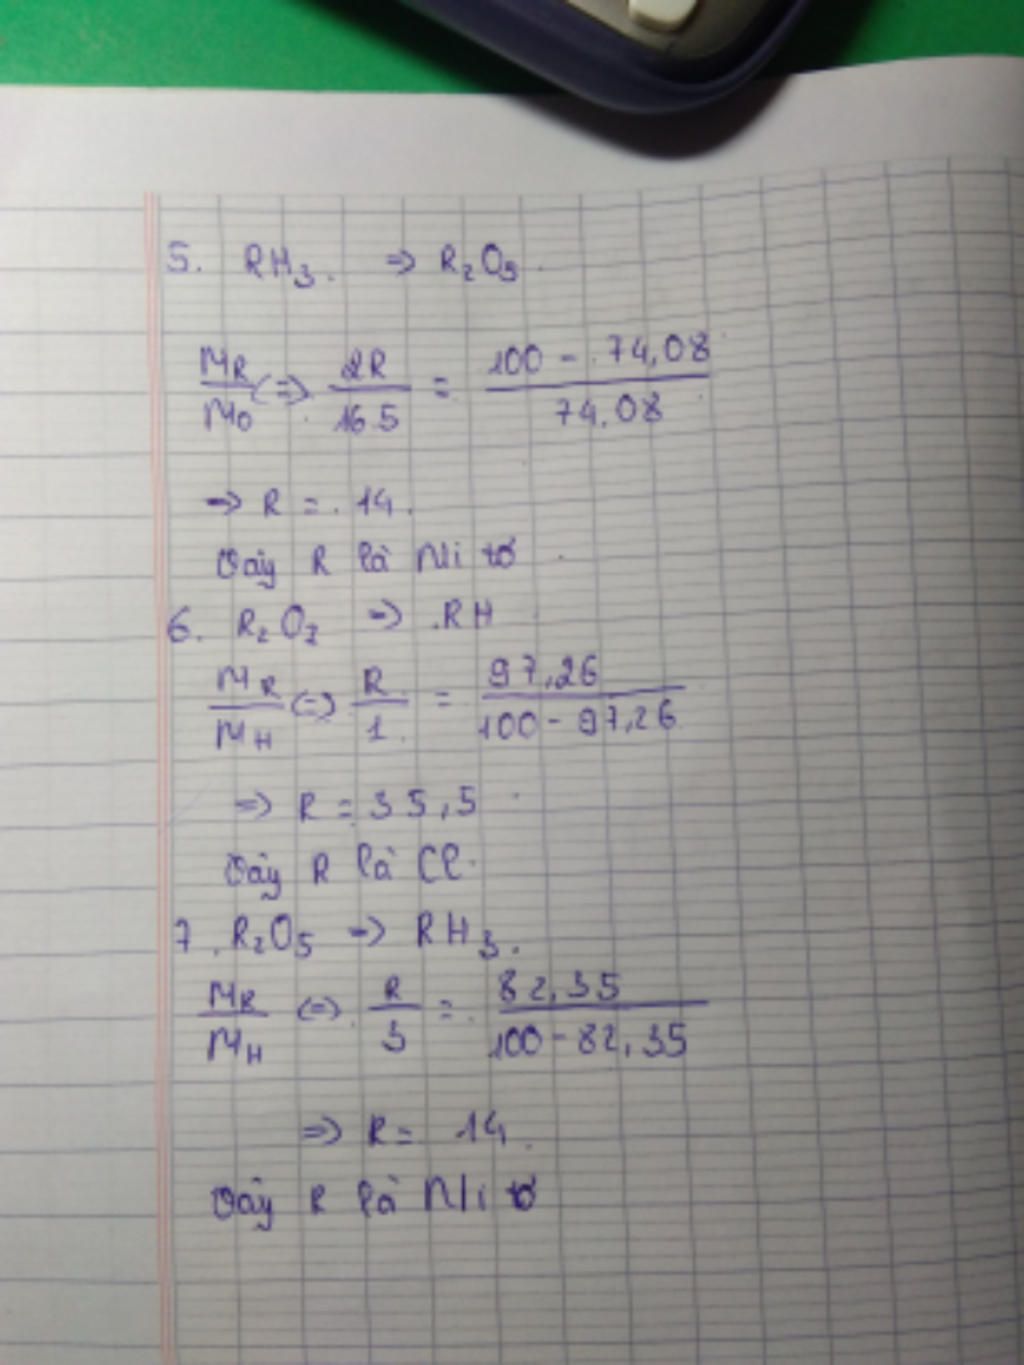 5. RH₃. => R₂O₅.
MR/MO (=) 2R/16.5 = 100 - 74,08/74,08
=> R = 14.
Vậy R là Nitơ.
6. R₂O₇ => RH
MR/MH (=) R/1 = 97,26/100 - 97,26
=> R = 35,5
Vậy R là Cl.
7. R₂O₅ => RH₃.
MR/MH (=) R/3 = 82,35/100 - 82,35
=> R = 14.
Vậy R là Nitơ